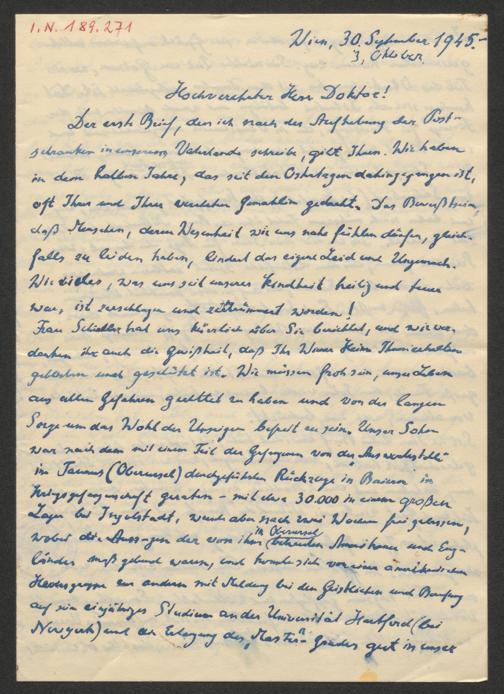 I.N. 189.271
Wien, 30. September 1945.-
3. Oktober
Hochverehrter Herr Doktor!
Der erste Brief, den ich nach der Aufhebung der Post-
schranken in unserem Vaterlande schreibe, gilt Ihnen. Wir haben
in dem halben Jahre, das seit den Ostertagen dahingegangen ist,
oft Ihrer und Ihrer verehrten Gemahlin gedacht. Das Bewußtsein,
daß Menschen, deren Wesenheit wir uns nahe fühlen dürfen, gleich-
falls zu leiden haben, lindert das eigene Leid und Ungemach.
Wie vieles, was uns seit unserer Kindheit heilig und teuer
war, ist zerschlagen und zertrümmert worden!
Frau hat uns kürzlich über Sie berichtet, und wir ver-
danken ihr auch die Gewißheit, daß Ihr Wiener Heim Ihnen erhalten
geblieben und geschützt ist. Wir müssen froh sein, unser Leben
aus allen Gefahren gerettet zu haben und von der langen
Sorge um das Wohl der Unsrigen befreit zu sein. Unser Sohn
war nach dem mit einem Teil der Gefangenen von der
im Taunus (Oberursel) durchgeführten Rückzuge in Baiern in
Kriegsgefangenschaft geraten - mit etwa 30.000 in einem großen
Lager bei Ingolstadt, wurde aber nach zwei Wochen freigelassen,
wobei die Aussagen der von ihm in Oberursel betreuten Amerikaner und Eng-
länder maßgebend waren, und konnte sich von einer amerikanischen
Heeresgruppe zur anderen mit Meldung bei den Geistlichen und Berufung
auf sein einjähriges Studium an der Universität Hartford (bei
Newyork) und der Erlangung des "Master"-Grades gut in unser